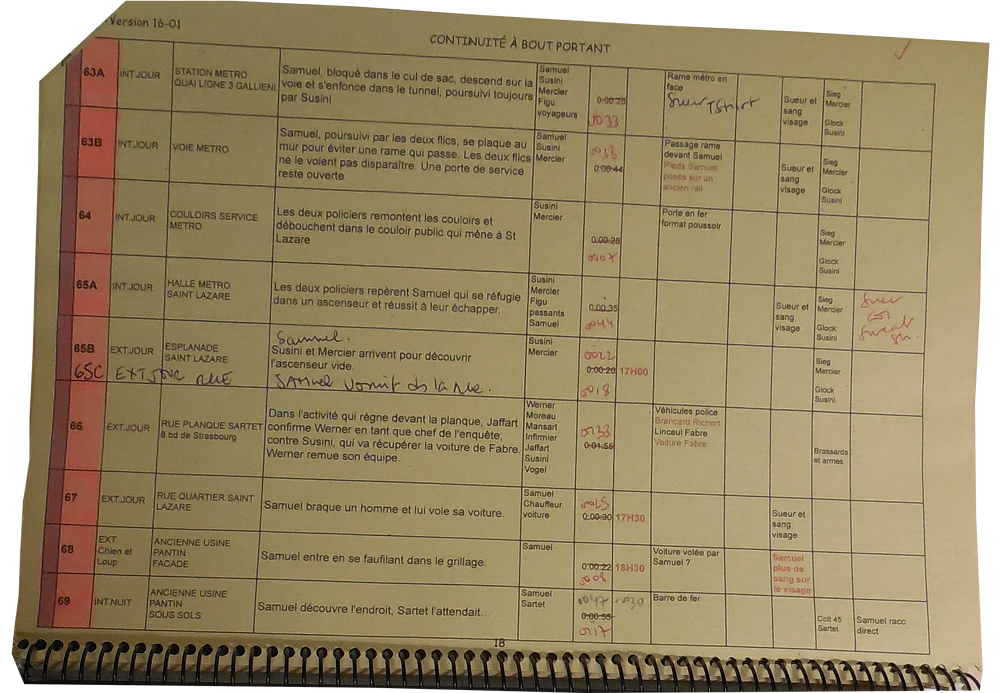 Version 16-01
CONTINUITÉ À BOUT PORTANT
63A
INT.JOUR
STATION METRO
QUAI LIGNE 3 GALLIENI
Samuel, bloqué dans le cul de sac, descend sur la
voie et s'enfonce dans le tunnel, poursuivi toujours
par Susini
Samuel
Susini
Mercier
Figu
voyageurs
0:00:28
0033
Rame métro en
face
Sueur T Shirt
Sueur et
sang
visage
Sieg
Mercier
Glock
Susini
63B
INT.JOUR
VOIE METRO
Samuel, poursuivi par les deux flics, se plaque au
mur pour éviter une rame qui passe. Les deux flics
ne le voient pas disparaître. Une porte de service
reste ouverte
Samuel
Susini
Mercier
0038
0:00:44
Passage rame
devant Samuel
Pieds Samuel
posés sur un
ancien rail
Sueur et
sang
visage
Sieg
Mercier
Glock
Susini
64
INT.JOUR
COULOIRS SERVICE
METRO
Les deux policiers remontent les couloirs et
débouchent dans le couloir public qui mène à St
Lazare
Susini
Mercier
0:00:26
0007
Porte en fer
format poussoir
Sieg
Mercier
Glock
Susini
65A
INT.JOUR
HALLE METRO
SAINT LAZARE
Les deux policiers repèrent Samuel qui se réfugie
dans un ascenseur et réussit à leur échapper.
Susini
Mercier
Figu
passants
Samuel
0:00:35
0044
Sueur et
sang
visage
Sieg
Mercier
Glock
Susini
Sueur
col
Sweat
65B
EXT.JOUR
ESPLANADE
SAINT LAZARE
Samuel.
Susini et Mercier arrivent pour découvrir
l'ascenseur vide.
Susini
Mercier
0022
0:00:20
17H00
Sieg
Mercier
Glock
Susini
65C EXT JOUR RUE
SAMUEL vomit ds la rue.
0018
66
EXT.JOUR
RUE PLANQUE SARTET
8 bd de Strasbourg
Dans l'activité qui règne devant la planque, Jaffart
confirme Werner en tant que chef de l'enquête,
contre Susini, qui va récupérer la voiture de Fabre.
Werner remue son équipe.
Werner
Moreau
Mansart
Infirmier
Jaffart
Susini
Vogel
0133
0:01:55
Véhicules police
Brancard Richert
Linceul Fabre
Voiture Fabre
Brassards
et armes
67
EXT.JOUR
RUE QUARTIER SAINT
LAZARE
Samuel braque un homme et lui vole sa voiture.
Samuel
Chauffeur
voiture
0025
0:00:30
17H30
Sueur et
sang
visage
68
EXT.
Chien et
Loup
ANCIENNE USINE
PANTIN
FACADE
Samuel entre en se faufilant dans le grillage.
Samuel
0:00:22
18H30
0008
Voiture volée par
Samuel ?
Samuel
plus de
sang sur
le visage
69
INT.NUIT
ANCIENNE USINE
PANTIN
SOUS SOLS
Samuel découvre l'endroit, Sartet l'attendait...
Samuel
Sartet
0047 + 0030
0:00:55
0117
Barre de fer
Colt 45
Sartet
Samuel racc
direct
18